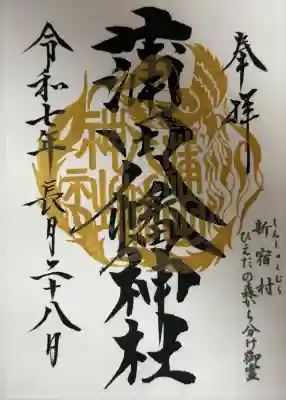 奉拝
新宿村
しんしゅくむら
ひえだの森から分け御霊
蒲田八幡神社
令和七年 長月二十八日